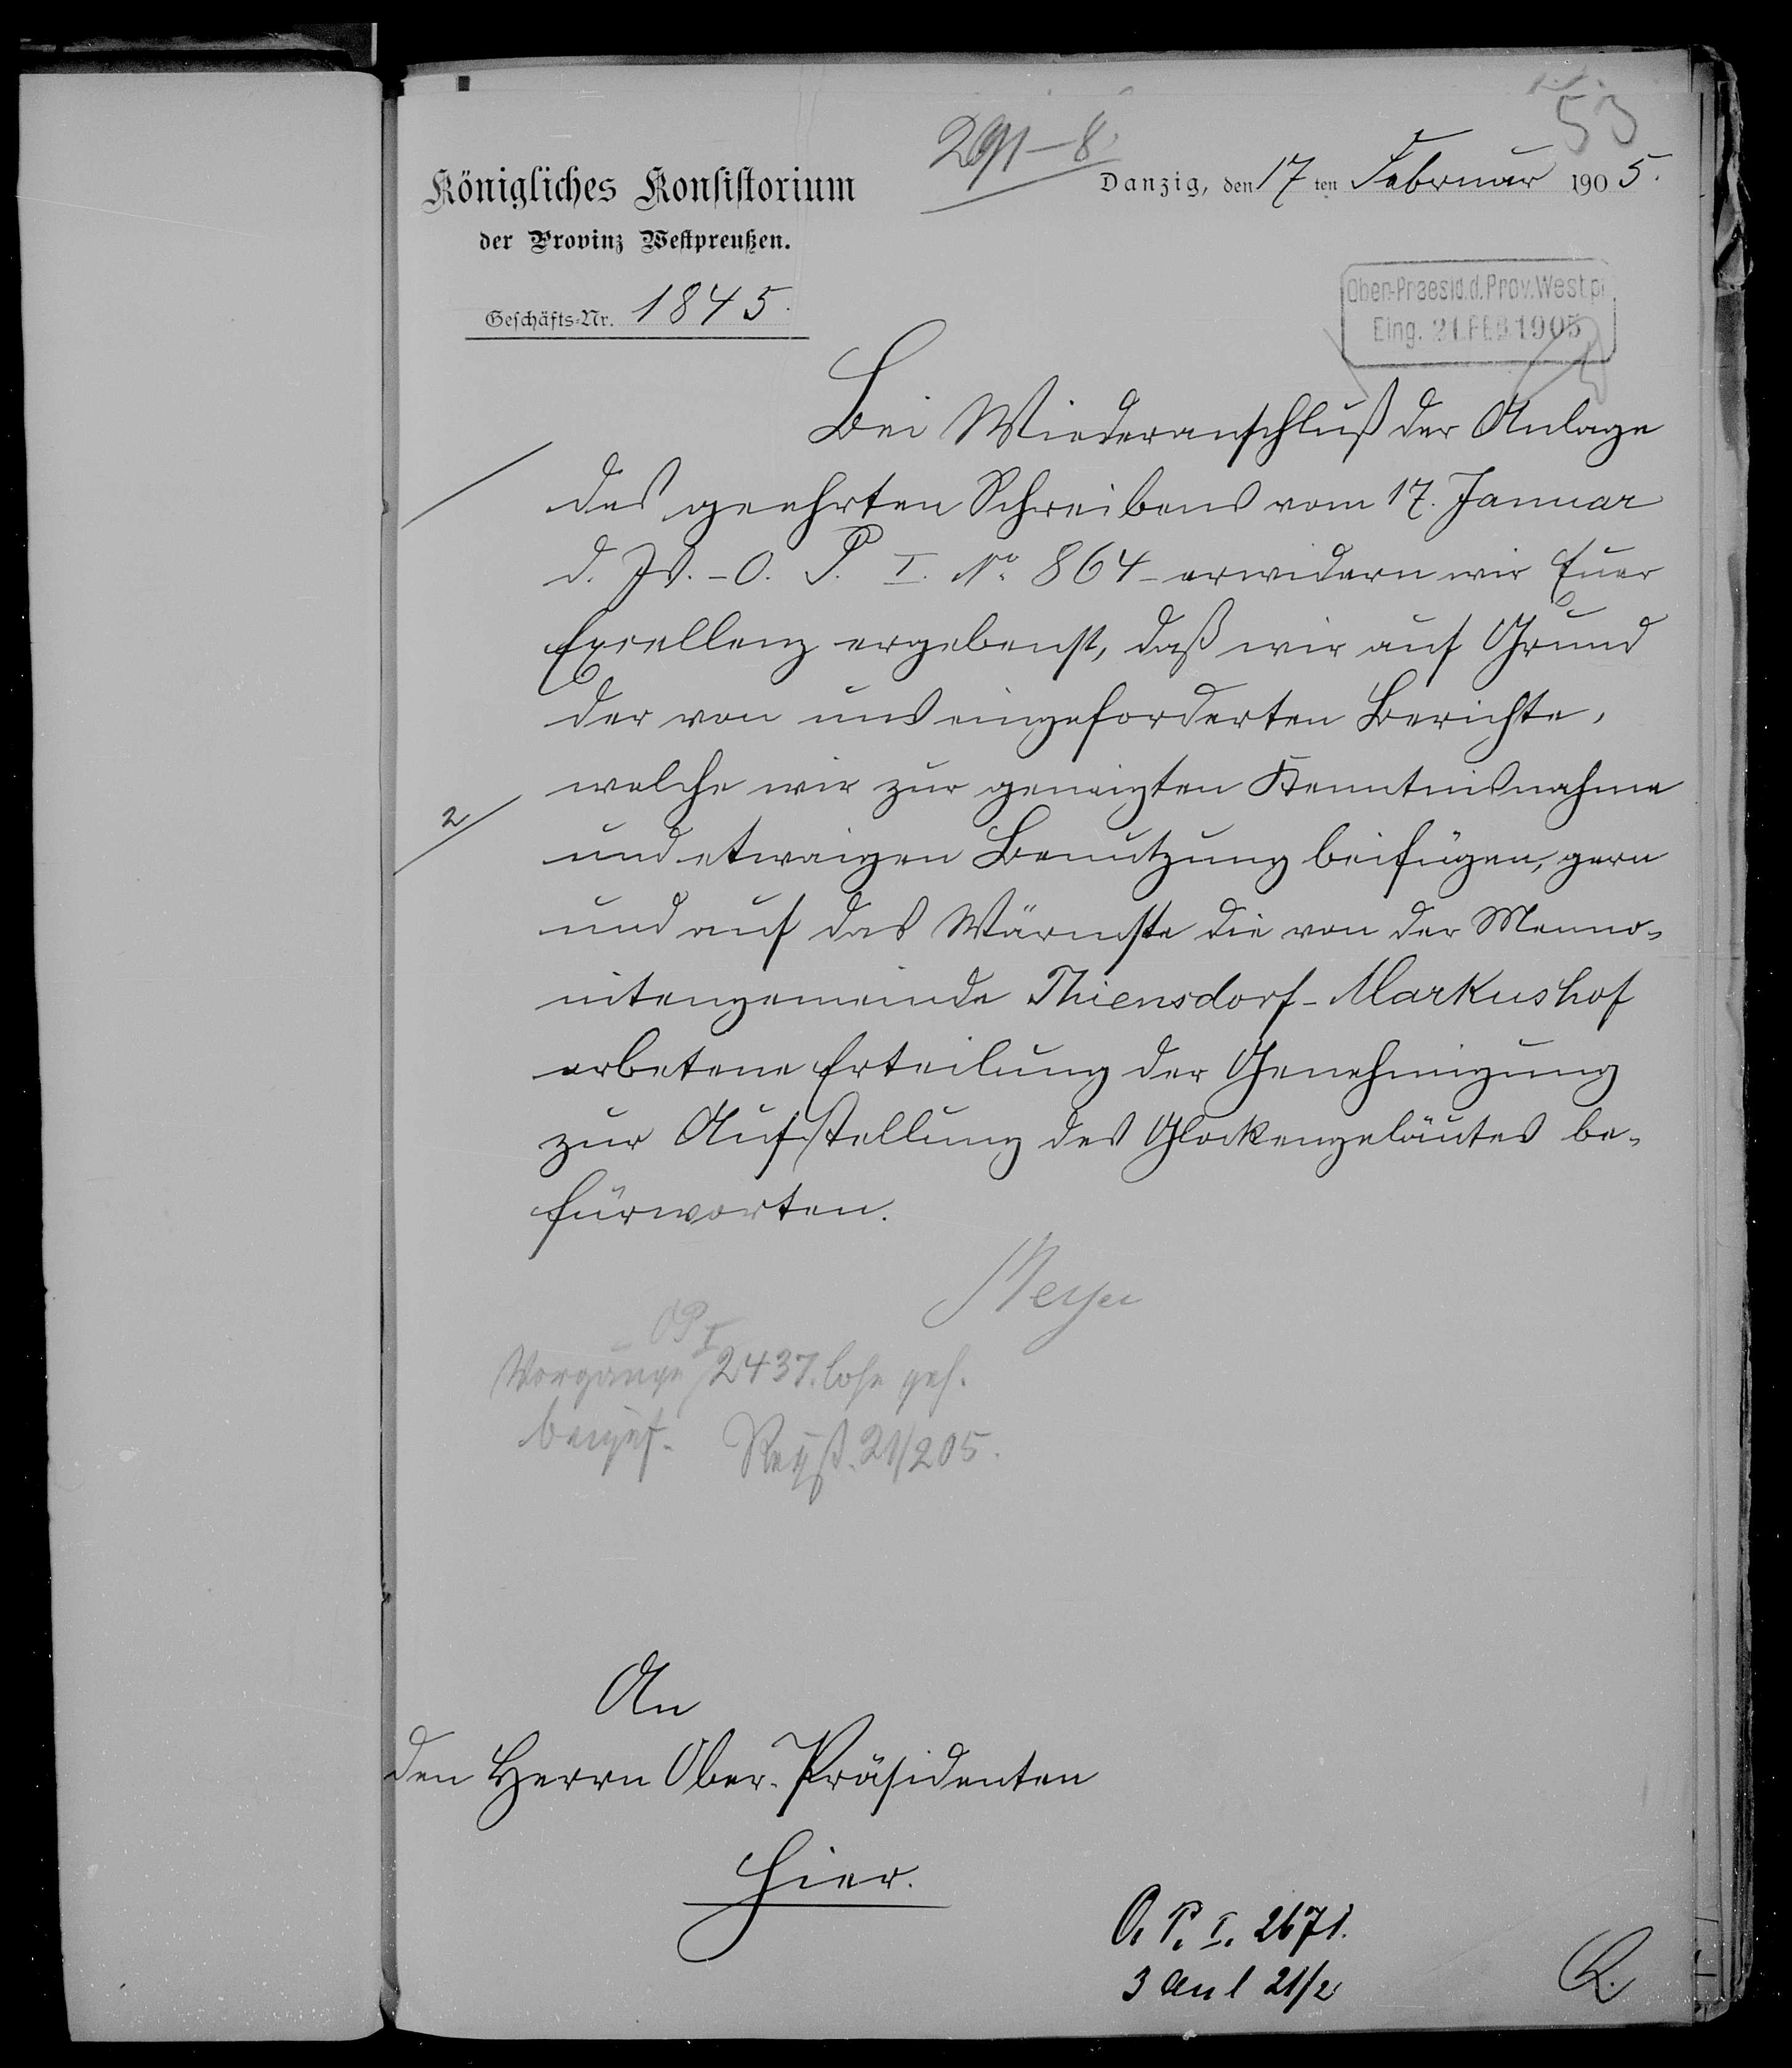 53
291-8.
Königliches Konsistorium
der Provinz Westpreußen.
Geschäfts-Nr. 1845.
Danzig, den 17ten Februar 1905.
Ober-Praesid. d. Prov. Westpr.
Eing. 21. FEB 1905
Bei Wiederanschluß der Anlage
des geehrten Schreibens vom 17. Januar
d. Js. - O. P. I. No 864 - erwidern wir Euer
Excellenz ergebenst, daß wir auf Grund
der von uns eingeforderten Berichte,
welche wir zur geneigten Kenntnisnahme
2/
und etwaigen Benutzung beifügen, gern
und auf das Wärmste die von der Menno-
nitengemeinde Thiensdorf-Markushof
erbetene Erteilung der Genehmigung
zur Aufstellung des Glockengeläutes be-
fürworten.
Meyer
OP I
Vorgänge 2437. lose geh.
beigef. 21/2 05.
An
den Herrn Ober-Präsidenten
Hier.
O. P. I. 2671.
3 Anl 21/2